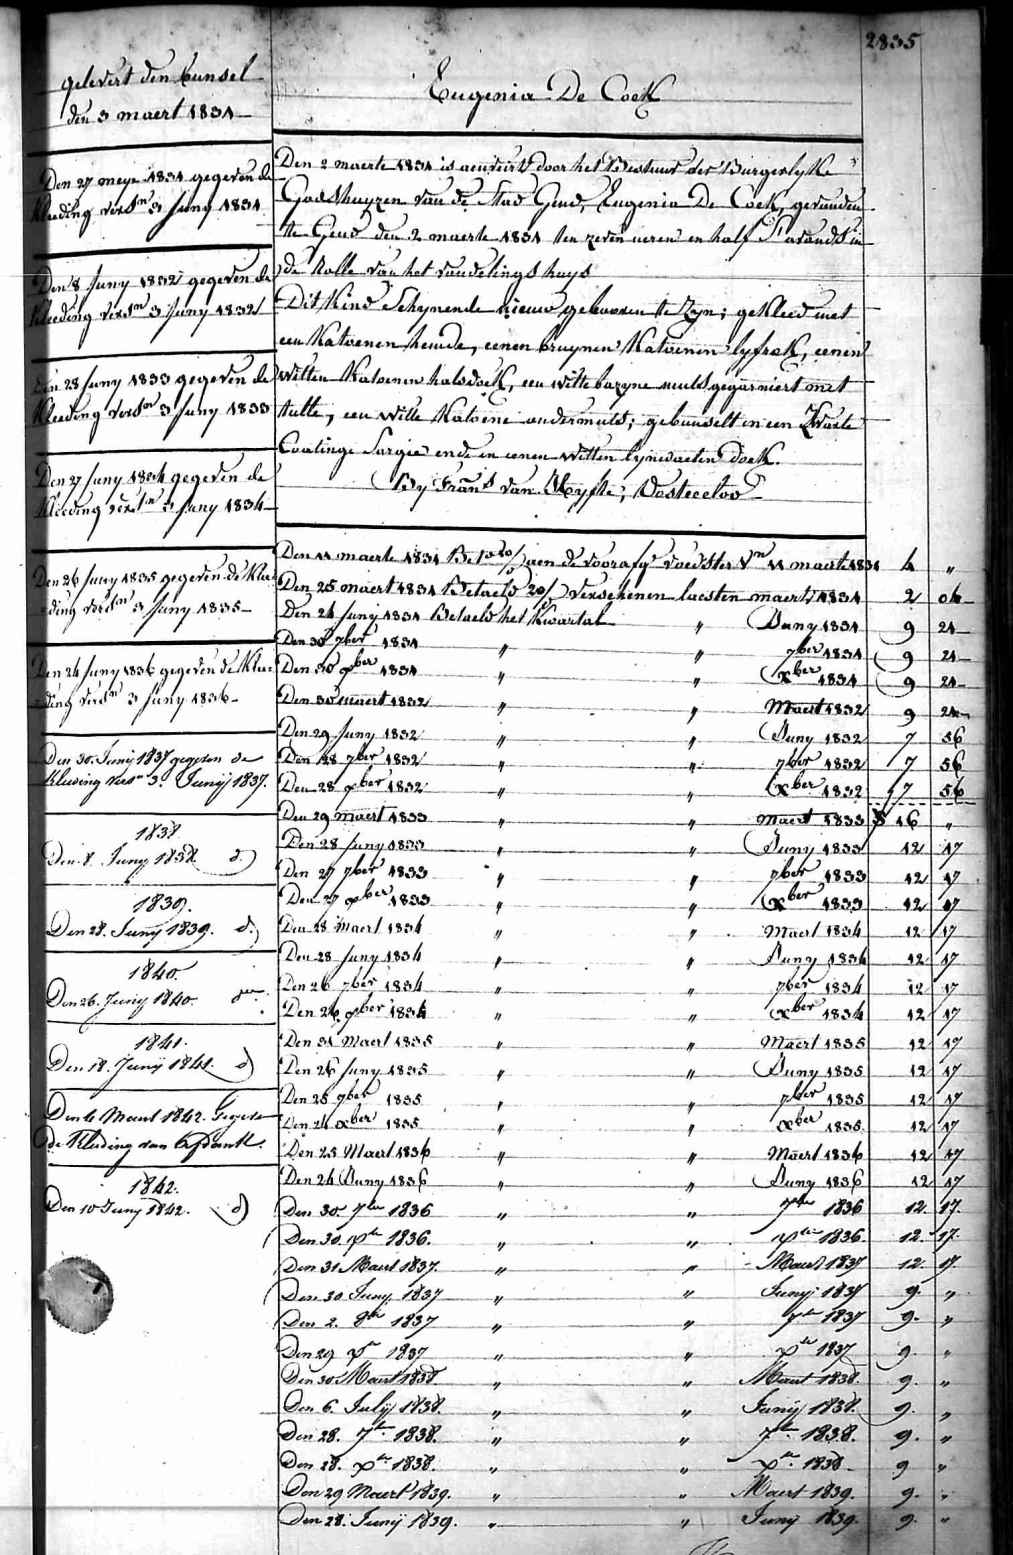 2835
gelevert den bunsel
den 3 maert 1831
Den 27 meye 1831 gegeven de
kleeding versn 3 Juny 1831
Den 8 Juny 1832 gegeven de
kleeding versn 3 Juny 1832
Den 28 Juny 1833 gegeven de
kleeding versn 3 Juny 1833
Den 27 Juny 1834 gegeven de
kleeding versn 3 Juny 1834
Den 26 Juny 1835 gegeven de klee
ding versn 3 Juny 1835
Den 24 Juny 1836 gegeven de klee
ding versn 3 Juny 1836
Den 30. Junij 1837 gegeven de
kleeding versn 3. Junij 1837.
1838
Den 8. Juny 1838. d.)
1839.
Den 28. Junij 1839. d.)
1840.
Den 26. Junij 1840.
1841.
Den 18. Junij 1841. d)
Den 4 Maert 1842. Gegeven
de kleeding van
1842.
Den 10 Junij 1842. d)
Eugenia De Cock
Den 2 maerte 1831 is aenveird door het Bestuur der Burgerlyke
Godshuyzen van de Stad Gend, Eugenia De Cock, gevonden
te Gend den 2 maerte 1831 ten zeven ueren en half S'avonds in
de Rolle van het vondelings huys
Dit kind Schynende nieuw gebooren te Zyn; gekleed met
een Katoenen hemde, eenen bruynen Katoenen lyfrok, eenen
witten Katoenen halsdoek, een witte bazyne muts gegarniert met
tulle, een witte Katoene ondermuts; gebunselt in een Zwarte
Coatinge Sargie ende in eenen witten lynwaeten doek.
By Frans van
Den 11 maerte 1831 Bet aen de voorafge voedster Vn 11 maerte 1831 4 "
Den 25 maert 1831 Betaeld 20/ verschenen laesten maerte 1831 2 06
Den 24 Juny 1831 Betaeld het Kwartal " Juny 1831 9 21
Den 30 7ber 1831 " " 7ber 1831 9 21
Den 30 xber 1831 " " xber 1831 9 21
Den 30 maert 1832 " " Maert 1832 9 21
Den 29 Juny 1832 " " Juny 1832 7 56
Den 28 7ber 1832 " " 7ber 1832 7 56
Den 28 xber 1832 " " xber 1832 7 56
Den 29 maert 1833 " " Maert 1833 16 "
Den 28 Juny 1833 " " Juny 1833 12 17
Den 27 7ber 1833 " " 7ber 1833 12 17
Den 27 xber 1833 " " xber 1833 12 17
Den 28 Maert 1834 " " Maert 1834 12 17
Den 28 Juny 1834 " " Juny 1834 12 17
Den 26 7ber 1834 " " 7ber 1834 12 17
Den 26 xber 1834 " " xber 1834 12 17
Den 31 Maert 1835 " " Maert 1835 12 17
Den 26 Juny 1835 " " Juny 1835 12 17
Den 25 7ber 1835 " " 7ber 1835 12 17
Den 24 xber 1835 " " xber 1835 12 17
Den 25 Maert 1836 " " Maert 1836 12 17
Den 24 Juny 1836 " " Juny 1836 12 17
Den 30. 7ber 1836 " " 7ber 1836 12. 17.
Den 30. xber 1836. " " xber 1836. 12. 17.
Den 31 Maert 1837. " " Maert 1837 12. 17.
Den 30 Junij 1837 " " Junij 1837 9. "
Den 2. 8br 1837 " " 7br 1837 9. "
Den 29 xr 1837 " " xbr 1837 9. "
Den 30 Maert 1838. " " Maert 1838. 9. "
Den 6. Julij 1838. " " Junij 1838. 9. "
Den 28. 7br 1838. " " 7br 1838. 9. "
Den 28. xbr 1838. " " xbr 1838 9 "
Den 29 Maert 1839. " " Maert 1839. 9. "
Den 28. Junij 1839. " " Junij 1839. 9. "